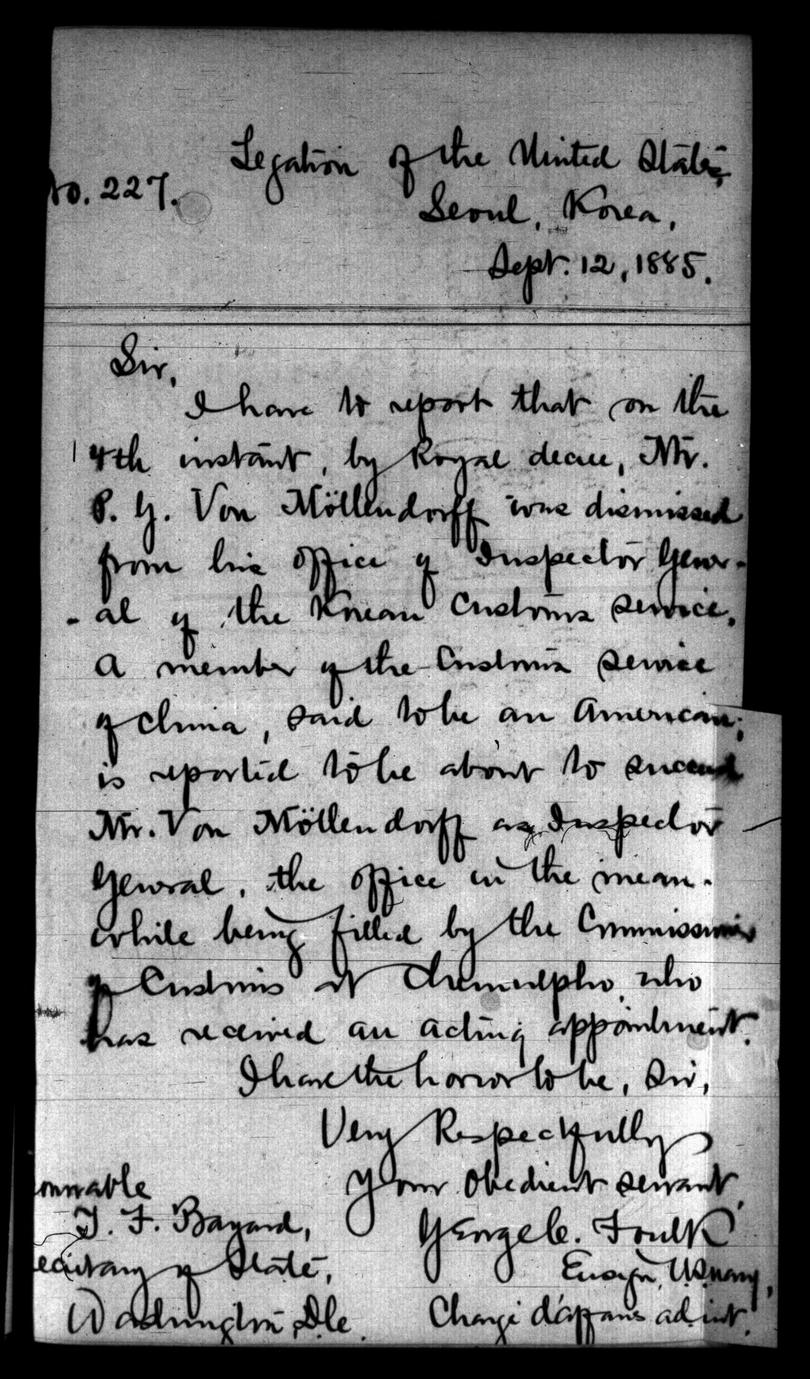 Legation of the United States,
No. 227.
Seoul, Korea,
Sept. 12, 1885.
Sir,
I have to report that on the
4th instant, by Royal decree, Mr.
P. G. Von Möllendorff was dismissed
from his office of Inspector Gener-
-al of the Korean Customs service.
A member of the Customs service
of China, said to be an American,
is reported to be about to succeed
Mr. Von Möllendorff as Inspector
General, the office in the mean-
while being filled by the Commissioner
of Customs at Chemulpho, who
has received an acting appointment.
I have the honor to be, Sir,
Very Respectfully
Your obedient servant,
onorable
T. F. Bayard,
George C. Foulk
ecretary of State,
Ensign, U.S. Navy,
Washington, D.C.
Chargé d'affaires ad. int.